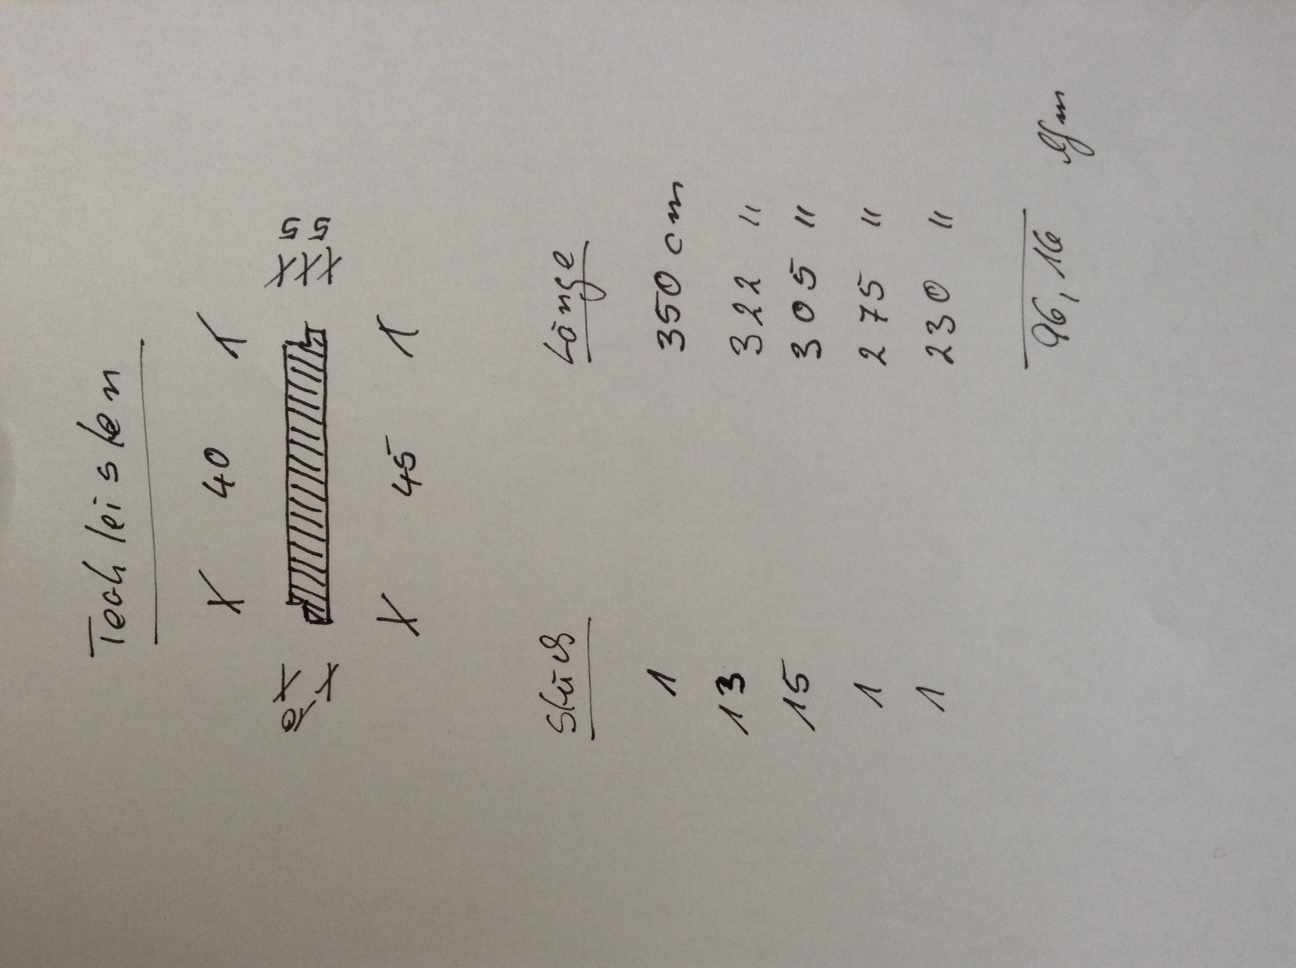 Teakleisten
40
5
5
45
Stück Länge
1 350 cm
13 322 "
15 305 "
1 275 "
1 230 "
96,16 lfm